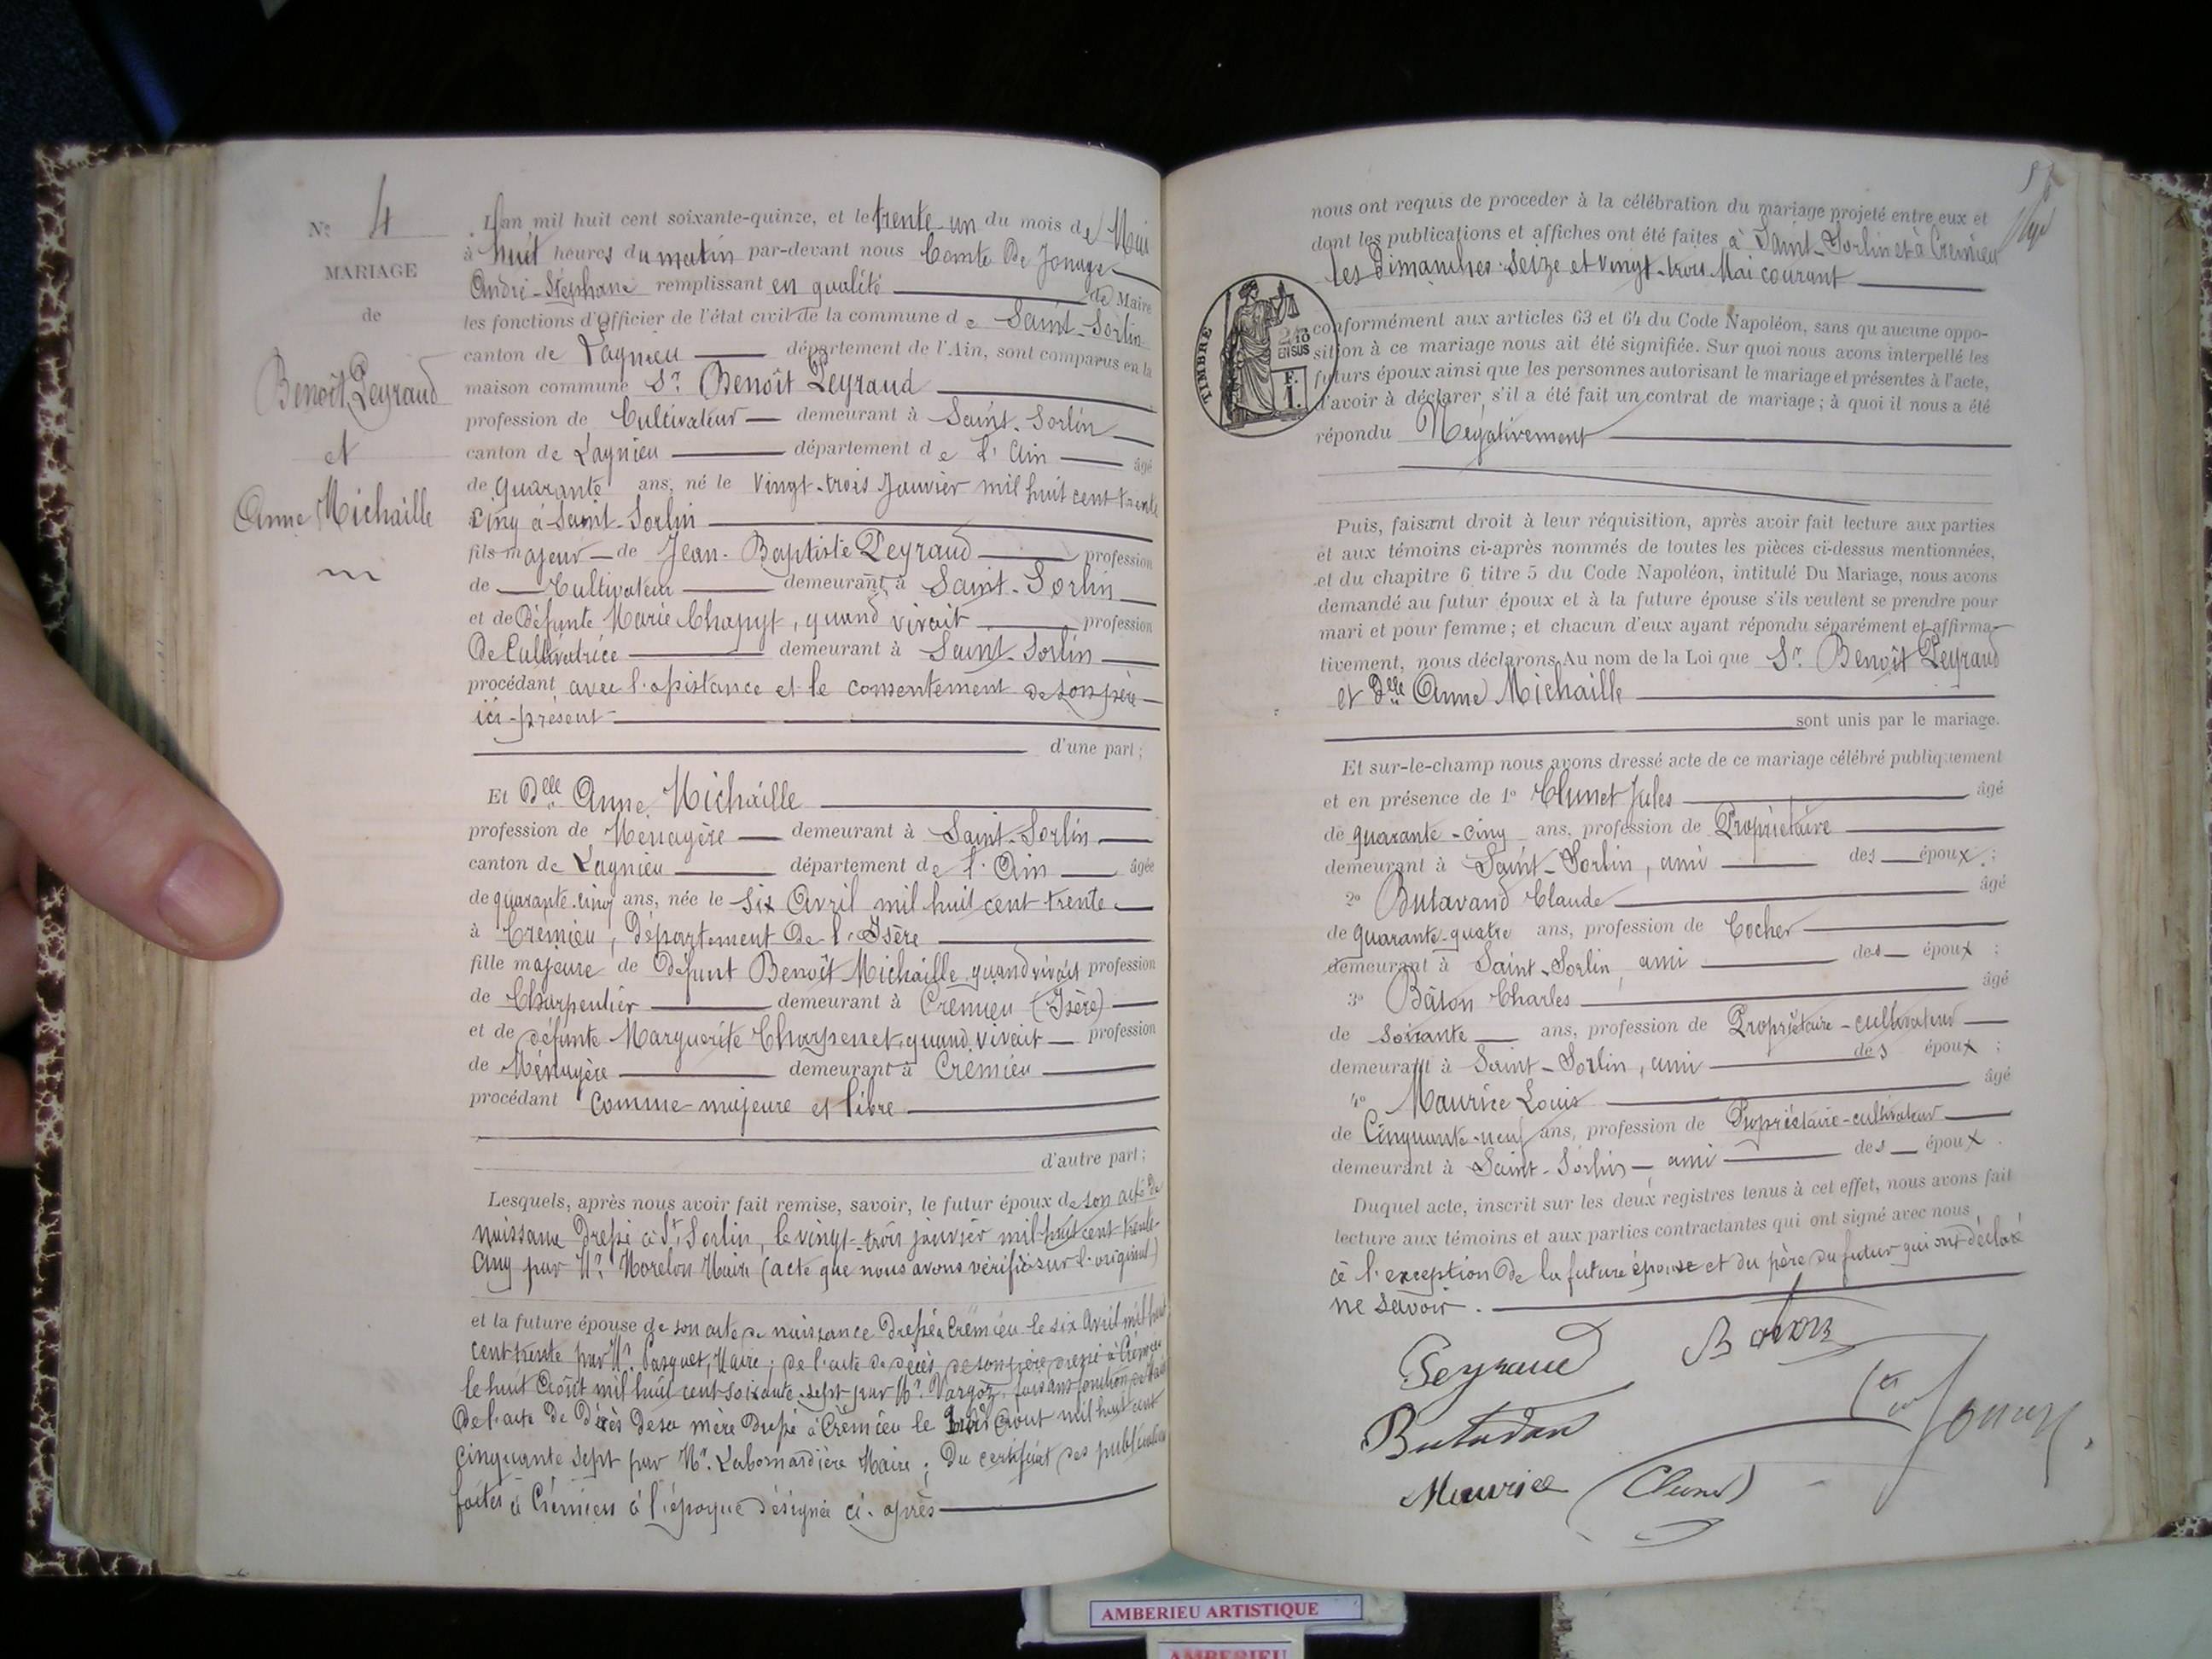 Nº 4
MARIAGE
de
Benoît Peyraud
et
Anne Michaille
L'an mil huit cent soixante-quinze, et le trente-un du mois de Mai
à huit heures du matin par-devant nous Comte De Jonage
André-Stéphane remplissant en qualité de Maire
les fonctions d'Officier de l'état civil de la commune de Saint-Sorlin
canton de Lagnieu département de l'Ain, sont comparus en la
maison commune Sr Benoît Peyraud
profession de Cultivateur demeurant à Saint-Sorlin
canton de Lagnieu département de l'Ain âgé
de quarante ans, né le vingt-trois Janvier mil huit cent trente
cinq à Saint-Sorlin
fils majeur de Jean-Baptiste Peyraud profession
de Cultivateur demeurant à Saint-Sorlin
et de Défunte Marie Chapuyt, quand vivait profession
De Cultivatrice demeurant à Saint-Sorlin
procédant avec l'assistance et le consentement de son père
ici-présent
d'une part;
Et Delle Anne Michaille
profession de Ménagère demeurant à Saint-Sorlin
canton de Lagnieu département de l'Ain âgée
de quarante-cinq ans, née le six Avril mil huit cent trente
à Crémieu, Département De l'Isère
fille majeure de Défunt Benoît Michaille quand vivait profession
de Charpentier demeurant à Crémieu (Isère)
et de défunte Marguerite Charpenet, quand vivait profession
de Ménagère demeurant à Crémieu
procédant comme majeure et libre
d'autre part;
Lesquels, après nous avoir fait remise, savoir, le futur époux de son acte de
naissance Dressé à St Sorlin, le vingt-trois janvier mil huit cent trente-
cinq par Mr Morelon Maire (acte que nous avons vérifié sur l'original)
et la future épouse de son acte de naissance Dressé à Crémieu le six Avril mil huit
cent trente par Mr Pasquet, Maire; de l'acte de décès de son père dressé à Crémieu
le huit Août mil huit cent soixante-sept par Mr. Vargoz, faisant fonction de Maire
De l'acte de Décès de sa mère Dressé à Crémieu le Août mil huit cent
cinquante sept par Mr. Labonnardière Maire; Du certificat des publications
faites à Crémieu à l'époque désignée ci-après
nous ont requis de procéder à la célébration du mariage projeté entre eux et
dont les publications et affiches ont été faites à Saint-Sorlin et à Crémieu
les Dimanches Seize et vingt-trois Mai courant
TIMBRE
2/10
EN SUS
F.
1.
conformément aux articles 63 et 64 du Code Napoléon, sans qu'aucune oppo-
sition à ce mariage nous ait été signifiée. Sur quoi nous avons interpellé les
futurs époux ainsi que les personnes autorisant le mariage et présentes à l'acte,
d'avoir à déclarer s'il a été fait un contrat de mariage; à quoi il nous a été
répondu Négativement
Puis, faisant droit à leur réquisition, après avoir fait lecture aux parties
et aux témoins ci-après nommés de toutes les pièces ci-dessus mentionnées,
et du chapitre 6 titre 5 du Code Napoléon, intitulé Du Mariage, nous avons
demandé au futur époux et à la future épouse s'ils veulent se prendre pour
mari et pour femme; et chacun d'eux ayant répondu séparément et affirma-
tivement, nous déclarons Au nom de la Loi que Sr Benoît Peyraud
et Delle Anne Michaille
sont unis par le mariage.
Et sur-le-champ nous avons dressé acte de ce mariage célébré publiquement
et en présence de 1º Clunet Jules âgé
de quarante-cinq ans, profession de Propriétaire
demeurant à Saint-Sorlin, ami des époux;
2º Butavand Claude âgé
de quarante-quatre ans, profession de Cocher
demeurant à Saint-Sorlin, ami des époux;
3º Bâton Charles âgé
de soixante ans, profession de Propriétaire-cultivateur
demeurant à Saint-Sorlin, ami des époux;
4º Maurice Louis âgé
de Cinquante-neuf ans, profession de Propriétaire-cultivateur
demeurant à Saint-Sorlin, ami des époux.
Duquel acte, inscrit sur les deux registres tenus à cet effet, nous avons fait
lecture aux témoins et aux parties contractantes qui ont signé avec nous
à l'exception De la future épouse et du père du futur qui ont déclaré
ne savoir.
Peyraud Baton
Butavan Cte Jonage
Maurice Clunet
AMBERIEU ARTISTIQUE
AMBERIEU